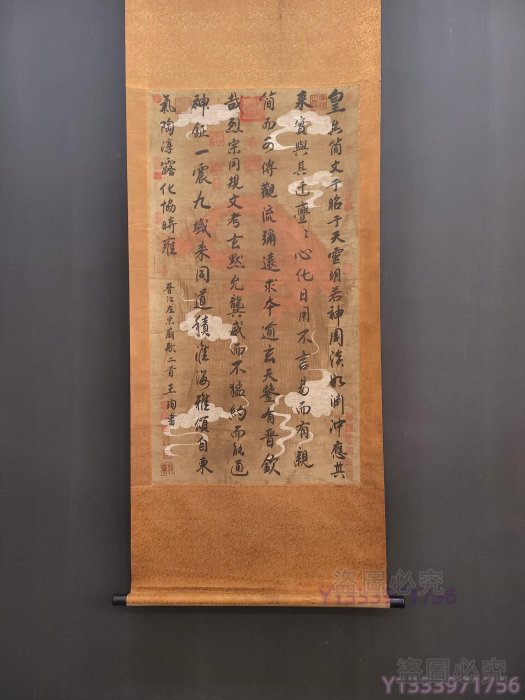 皇矣简文于昭于天靈明若神周淡如渊冲應其
来實與其迁亹〻心化日用不言易而有親
简而可傳觀流彌遠求本逾玄天鑒有晉欽
哉烈宗同規文考玄默允龔威而不猛約而能通
神鉦一震九域来同道積淮海雅頌自東
氣陶淳露化協時雍
晉江左宗廟歌二首 王珣書
盜圖必究
Y1353971756
盜圖必究
Y1353971756